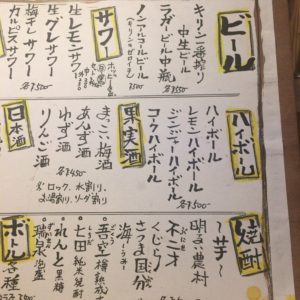 ビール
キリン一番搾り
中生ビール
ラガービール中瓶
各¥550
ノンアルコールビール
(キリンゼロイチ)
¥500
サワー
生レモンサワー
生グレサワー
梅干しサワー
カルピスサワー
各¥500
ハイボール
ハイボール
レモンハイボール
ジンジャーハイボール
コークハイボール
各¥550
果実酒
まっこい梅酒
あんず酒
ゆず酒
りんご酒
各¥450
ロック、水割り、
お湯割り、ソーダ割り
日本酒
焼酎
〜芋〜
明るい農村
不二才
くじら
さつま国分
海
吾空
七田 純米焼酎
れんと 黒糖
瑞泉 泡盛
ボトル各種